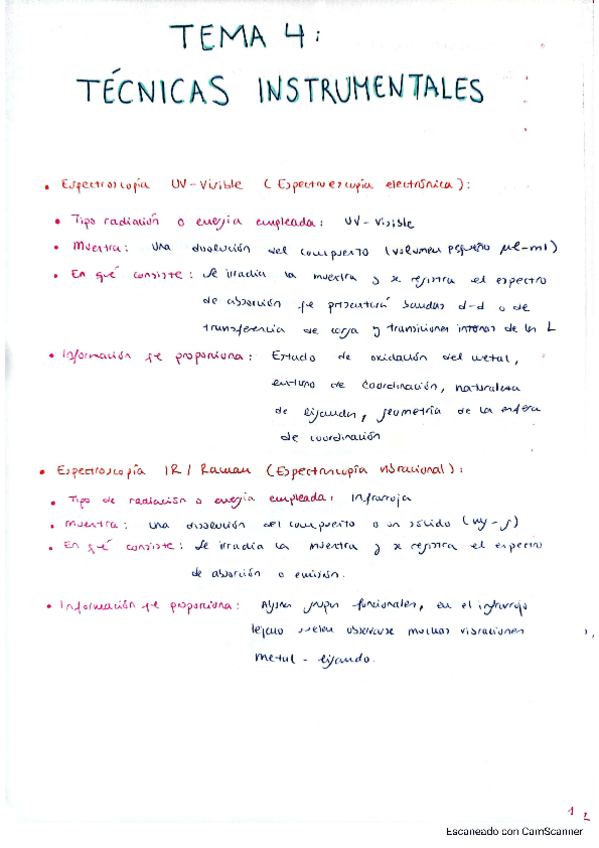 TEMA 4:
TÉCNICAS INSTRUMENTALES
• Espectroscopía UV-Visible (Espectroescopía electrónica):
• Tipo radiación o energía empleada: UV-Visible
• Muestra: Una disolución del compuesto (volumen pequeño μl-ml)
• En qué consiste: Se irradia la muestra y se registra el espectro
de absorción que presentará bandas d-d o de
transferencia de carga y transiciones internas de los L
• Información que proporciona: Estado de oxidación del metal,
entorno de coordinación, naturaleza
de ligandos, geometría de la esfera
de coordinación
• Espectroscopía IR / Raman (Espectroscopía vibracional):
• Tipo de radiación o energía empleada: Infrarroja
• Muestra: Una disolución del compuesto o un sólido (mg-g)
• En qué consiste: Se irradia la muestra y se registra el espectro
de absorción o emisión.
• Información que proporciona: Algunos grupos funcionales, en el infrarrojo
lejano suelen observarse muchas vibraciones
metal-ligando.
1
2
Escaneado con CamScanner